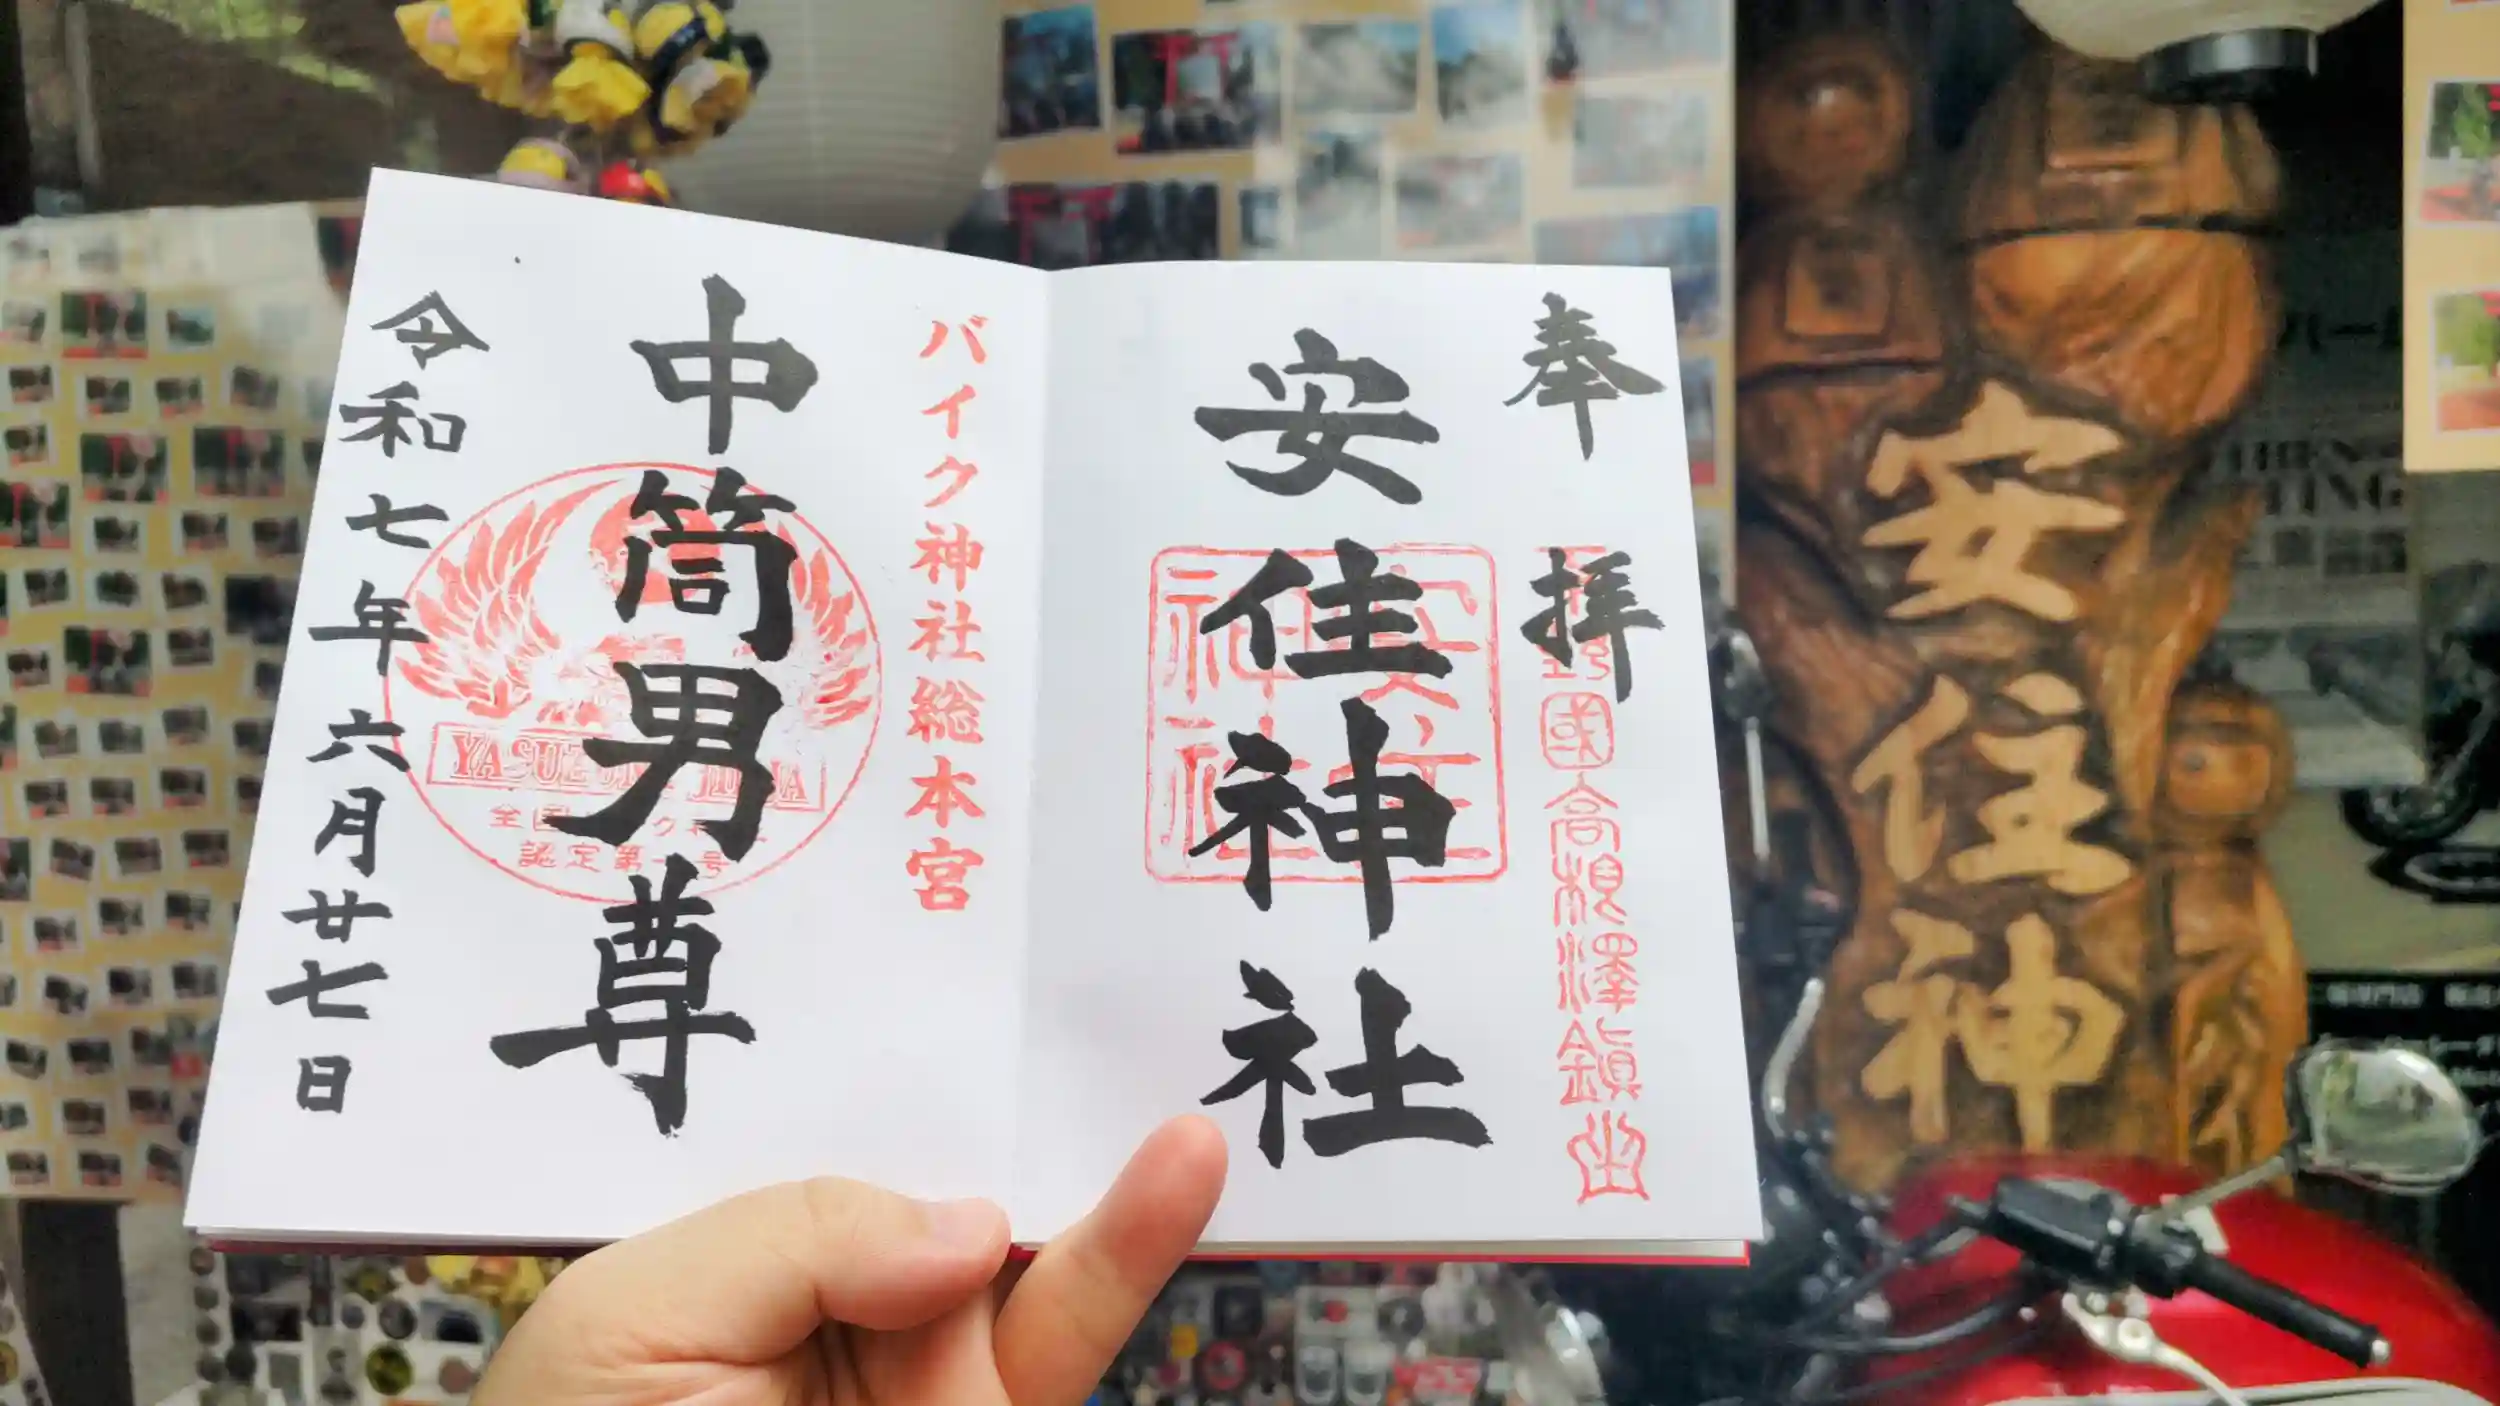 奉拝
安住神社
下野國高根澤鎮座
安住神社
バイク神社総本宮
中筒男尊
YASUZUMI JINJA
認定第一号
令和七年六月廿七日
安住神